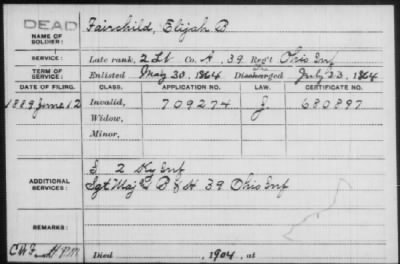 DEAD
NAME OF SOLDIER: Fairchild, Elijah B
SERVICE: Late rank, 2 Lt Co. A, 39 Reg't Ohio Inf
TERM OF SERVICE: Enlisted May 30, 1864 Discharged July 23, 1864
DATE OF FILING. CLASS. APPLICATION NO. LAW. CERTIFICATE NO.
1889 June 12 Invalid, 709274 J. 680897
Widow,
Minor,
ADDITIONAL SERVICES: I 2 Ky Inf
Sgt Maj & B & H 39 Ohio Inf
REMARKS:
Died 1904, at